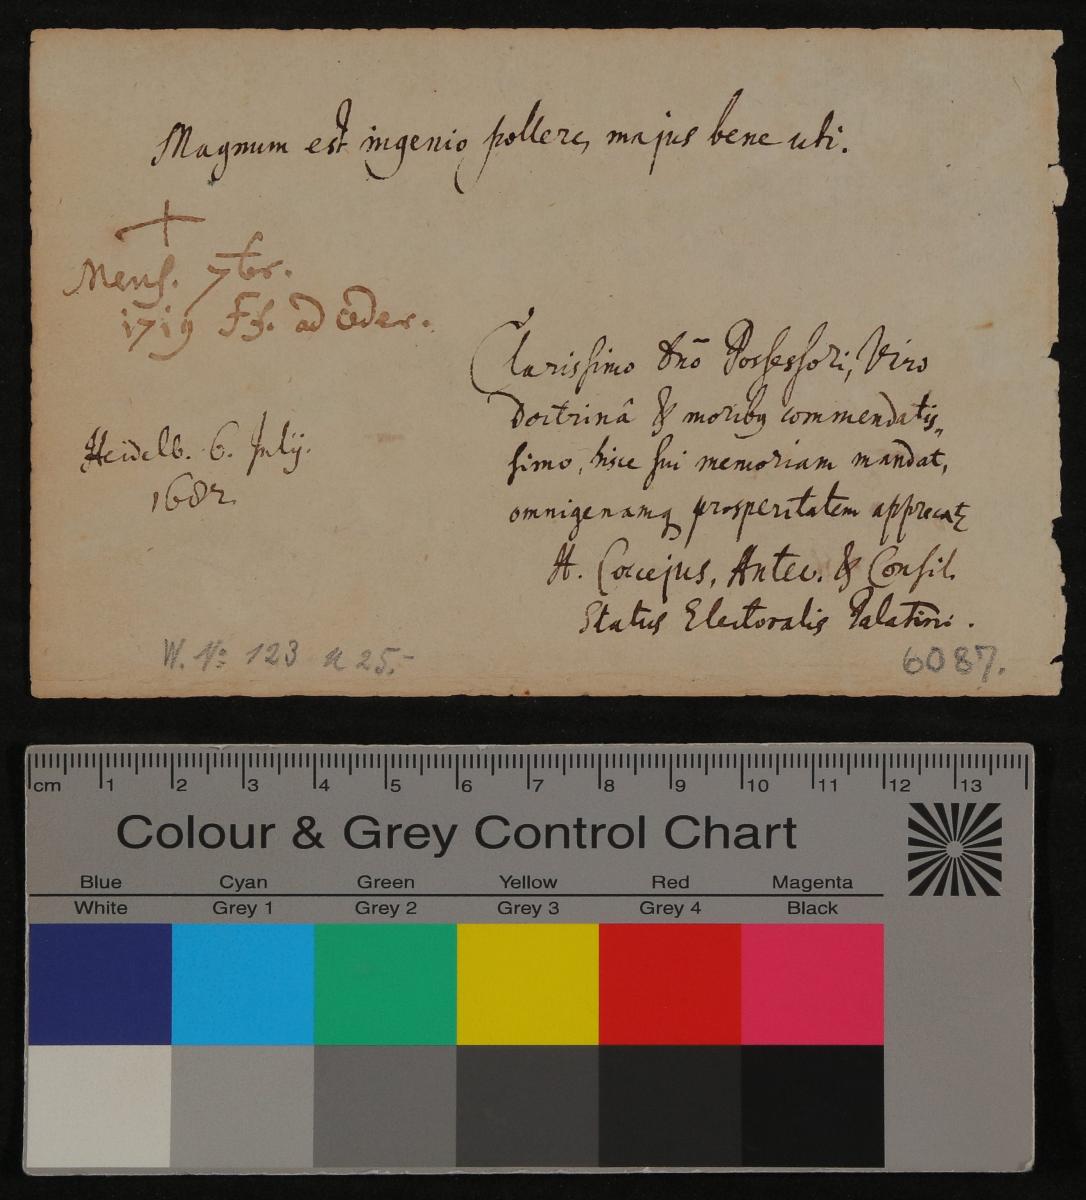 Magnum est ingenio pollere, majus bene uti.
+
Mens. 7br.
1719 Ff. ad Oder.
Clarissimo dnõ Possessori, Viro
Doctrinâ & moribq commendatis„
simo, hisce sui memoriam mandat,
omnigenamq prosperitatem apprecatz
Heidelb. 6. Julij.
1682.
H. Coccejus, Antec. & Consil.
Status Electoralis Palatini.
W. No: 123 25.-
6087.
cm 1 2 3 4 5 6 7 8 9 10 11 12 13
Colour & Grey Control Chart
Blue Cyan Green Yellow Red Magenta
White Grey 1 Grey 2 Grey 3 Grey 4 Black